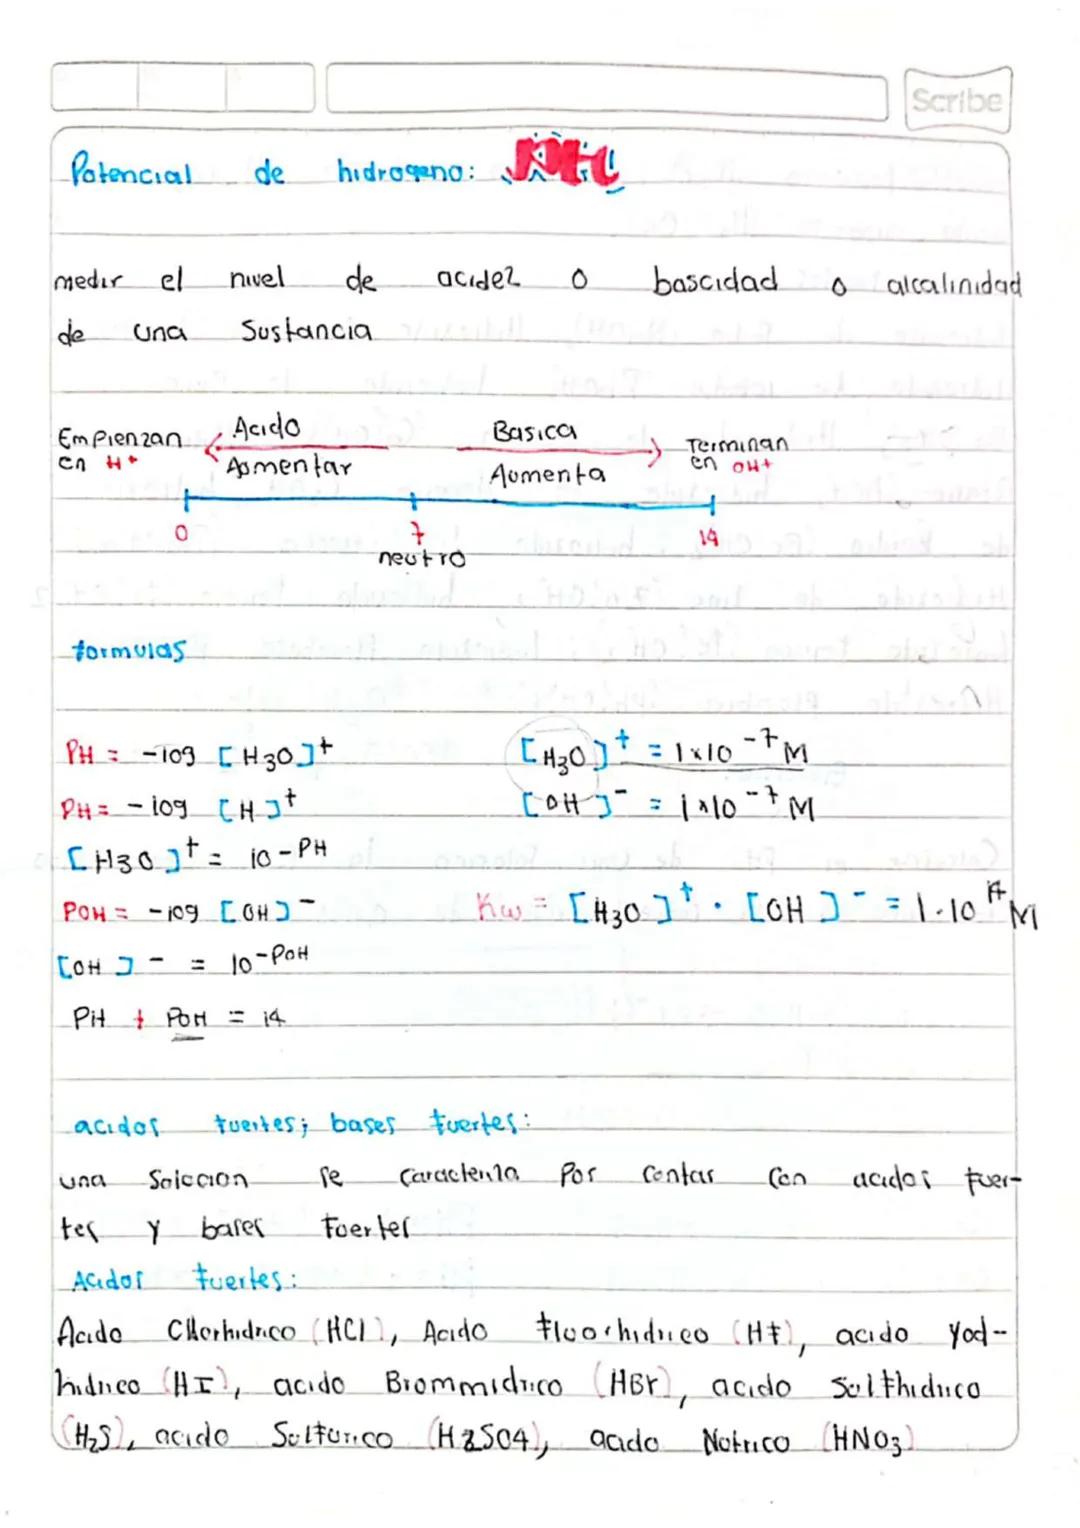 Scribe
Potencial de hidrogeno: PH
medir el nivel de acidez o bascidad o alcalinidad
de una Sustancia
Empienzan en H+
Acido
Aomentar
Basica
Aomenta
Terminan en OH+
0
7
14
neutro
formulas
PH = -log [H3O]+
[H3O]+ = 1x10 -7 M
PH = -log [H]+
[OH]- = 1x10 -7 M
[H3O]+ = 10 -PH
POH = -log [OH]-
Kw = [H3O]+ · [OH]- = 1·10 14 M
[OH]- = 10 -POH
PH + POH = 14
acidos fuertes; bases fuertes:
una Solocion se Caracteriza Por Contar Con acidos fuer-
tes y bases Fuertes
Acidos fuertes:
Acido Clorhidrico (HCl), Acido fluorhidrico (HF), acido Yod-
hidrico (HI), acido Brommidrico (HBr), acido Sulfhidrico
(H2S), acido Sulfurico (H2SO4), acido Notrico (HNO3)